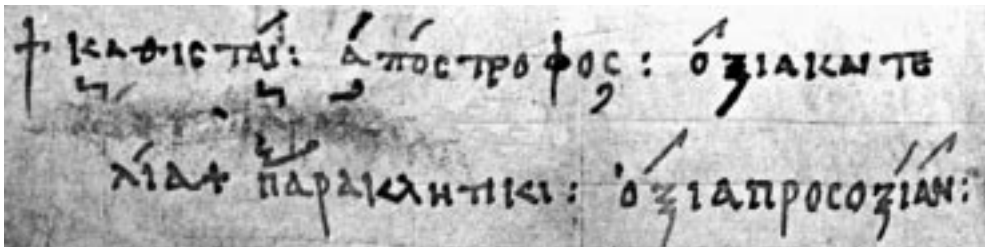 † καθισταί: ἀπόστροφος: ὀξιακαιτε
λίαϯ παρακλητικι: ὀξιαπροσοξιάν: